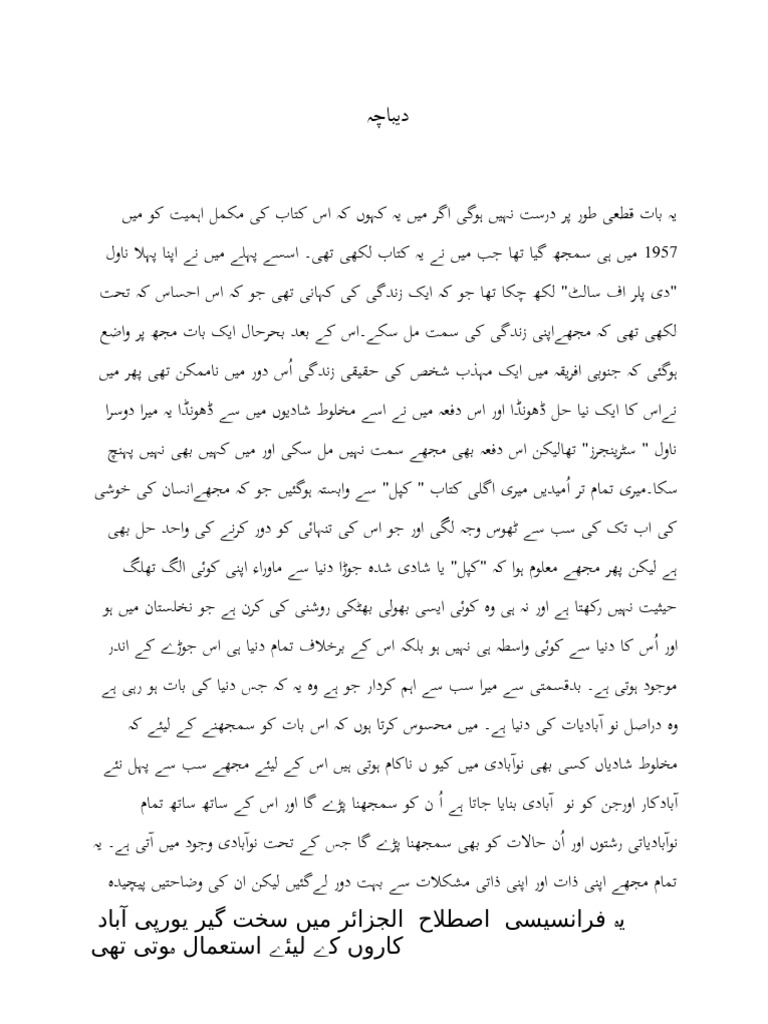 دیباچہ
یہ بات قطعی طور پر درست نہیں ہوگی اگر میں یہ کہوں کہ اس کتاب کی مکمل اہمیت کو میں
1957 میں ہی سمجھ گیا تھا جب میں نے یہ کتاب لکھی تھی۔ اسسے پہلے میں نے اپنا پہلا ناول
"دی پلر اف سالٹ" لکھ چکا تھا جو کہ ایک زندگی کی کہانی تھی جو کہ اس احساس کہ تحت
لکھی تھی کہ مجھےاپنی زندگی کی سمت مل سکے۔اس کے بعد بحرحال ایک بات مجھ پر واضع
ہوگئی کہ جنوبی افریقہ میں ایک مہذب شخص کی حقیقی زندگی اُس دور میں ناممکن تھی پھر میں
نےاس کا ایک نیا حل ڈھونڈا اور اس دفعہ میں نے اسے مخلوط شادیوں میں سے ڈھونڈا یہ میرا دوسرا
ناول " سٹرینجرز" تھالیکن اس دفعہ بھی مجھے سمت نہیں مل سکی اور میں کہیں بھی نہیں پہنچ
سکا۔میری تمام تر اُمیدیں میری اگلی کتاب " کپل" سے وابستہ ہوگئیں جو کہ مجھےانسان کی خوشی
کی اب تک کی سب سے ٹھوس وجہ لگی اور جو اس کی تنہائی کو دور کرنے کی واحد حل بھی
ہے لیکن پھر مجھے معلوم ہوا کہ "کپل" یا شادی شدہ جوڑا دنیا سے ماوراء اپنی کوئی الگ تھلگ
حیثیت نہیں رکھتا ہے اور نہ ہی وہ کوئی ایسی بھولی بھٹکی روشنی کی کرن ہے جو نخلستان میں ہو
اور اُس کا دنیا سے کوئی واسطہ ہی نہیں ہو بلکہ اس کے برخلاف تمام دنیا ہی اس جوڑے کے اندر
موجود ہوتی ہے۔ بدقسمتی سے میرا سب سے اہم کردار جو ہے وہ یہ کہ جس دنیا کی بات ہو رہی ہے
وہ دراصل نو آبادیات کی دنیا ہے۔ میں محسوس کرتا ہوں کہ اس بات کو سمجھنے کے لیئے کہ
مخلوط شادیاں کسی بھی نوآبادی میں کیو ں ناکام ہوتی ہیں اس کے لیئے مجھے سب سے پہل نئے
آبادکار اورجن کو نو آبادی بنایا جاتا ہے اُ ن کو سمجھنا پڑے گا اور اس کے ساتھ ساتھ تمام
نوآبادیاتی رشتوں اور اُن حالات کو بھی سمجھنا پڑے گا جس کے تحت نوآبادی وجود میں آتی ہے۔ یہ
تمام مجھے اپنی ذات اور اپنی ذاتی مشکلات سے بہت دور لےگئیں لیکن ان کی وضاحتیں پیچیدہ
یہ فرانسیسی اصطلاح الجزائر میں سخت گیر یورپی آباد
کاروں کے لیئے استعمال ہوتی تھی